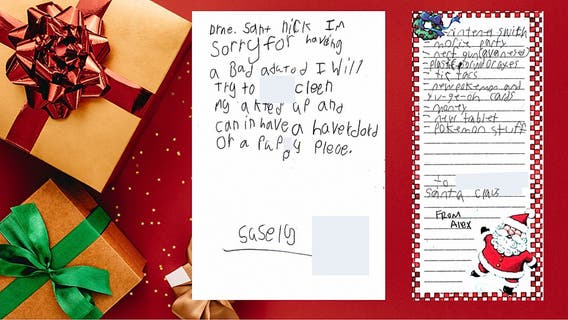 Drne. Sant nick Im
Sorry for having
a Bad adtod I Will
Try to cleen
My akted up and
can in have a havetdotd
Or a Puppy Plece.
sasely
- nintendo swith
- movie party
- nerf gun
- plastic
- tic tacs
- new pokemon and
yu-ge-oh cards
- money
- new tablet
- pokemon stuff
to
Santa claus
FROM
Alex